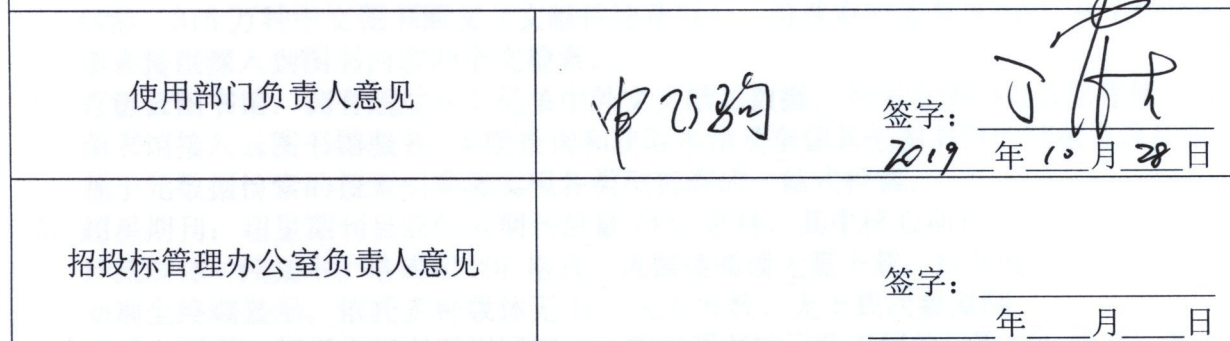 使用部门负责人意见
签字:
2019年10月28日
招投标管理办公室负责人意见
签字:
年 月 日